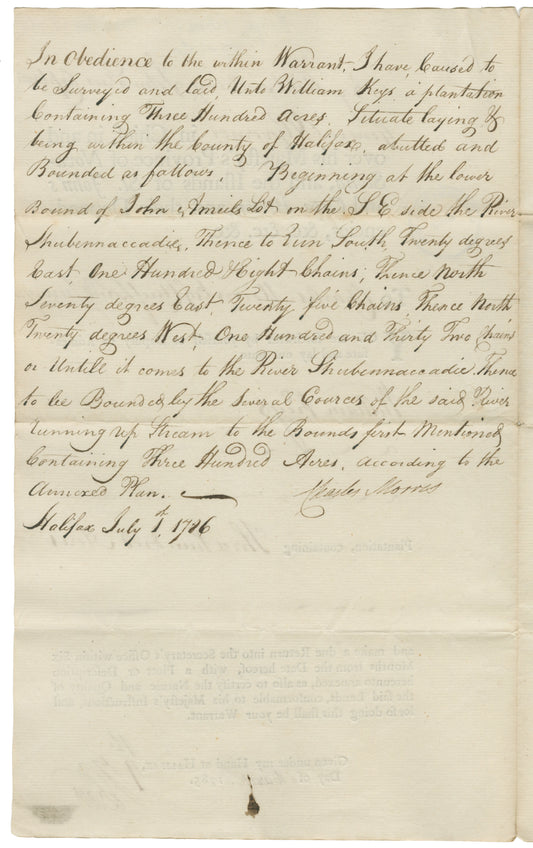 In Obedience to the within Warrant, I have Caused to
be Survey'd and laid, Unto William Keys a plantation
Containing Three Hundred Acres. Situate laying &
being within the County of Halifax, abutted and
Bounded as follows, Beginning at the lower
Bound of John Amiels Lot on the S,E, side the River
Shubennaccadie, Thence to Run South, Twenty degrees
East, One Hundred & Eight Chains; Thence North
Seventy degrees East, Twenty five Chains, Thence North
Twenty degrees West, One Hundred and Thirty Two Chains
or Untill it comes to the River Shubennaccadie Thence
to be Bounded by the Several Cources of the said River
Running up Stream to the Bounds first Mentioned
Containing Three Hundred Acres, according to the
Annexed Plan.
Charles Morris
Halifax July 1, 1786
Plantation, containing
and make a due Return into the Secretary's Office within Six
Months from the Date hereof, with a Plott or Description
hereunto annexed, as also to certify the Nature and Quality of
the said Lands, conformable to his Majesty's Instructions, and
for so doing this shall be your Warrant.
Given under my Hand at Halifax,
Day of 1785